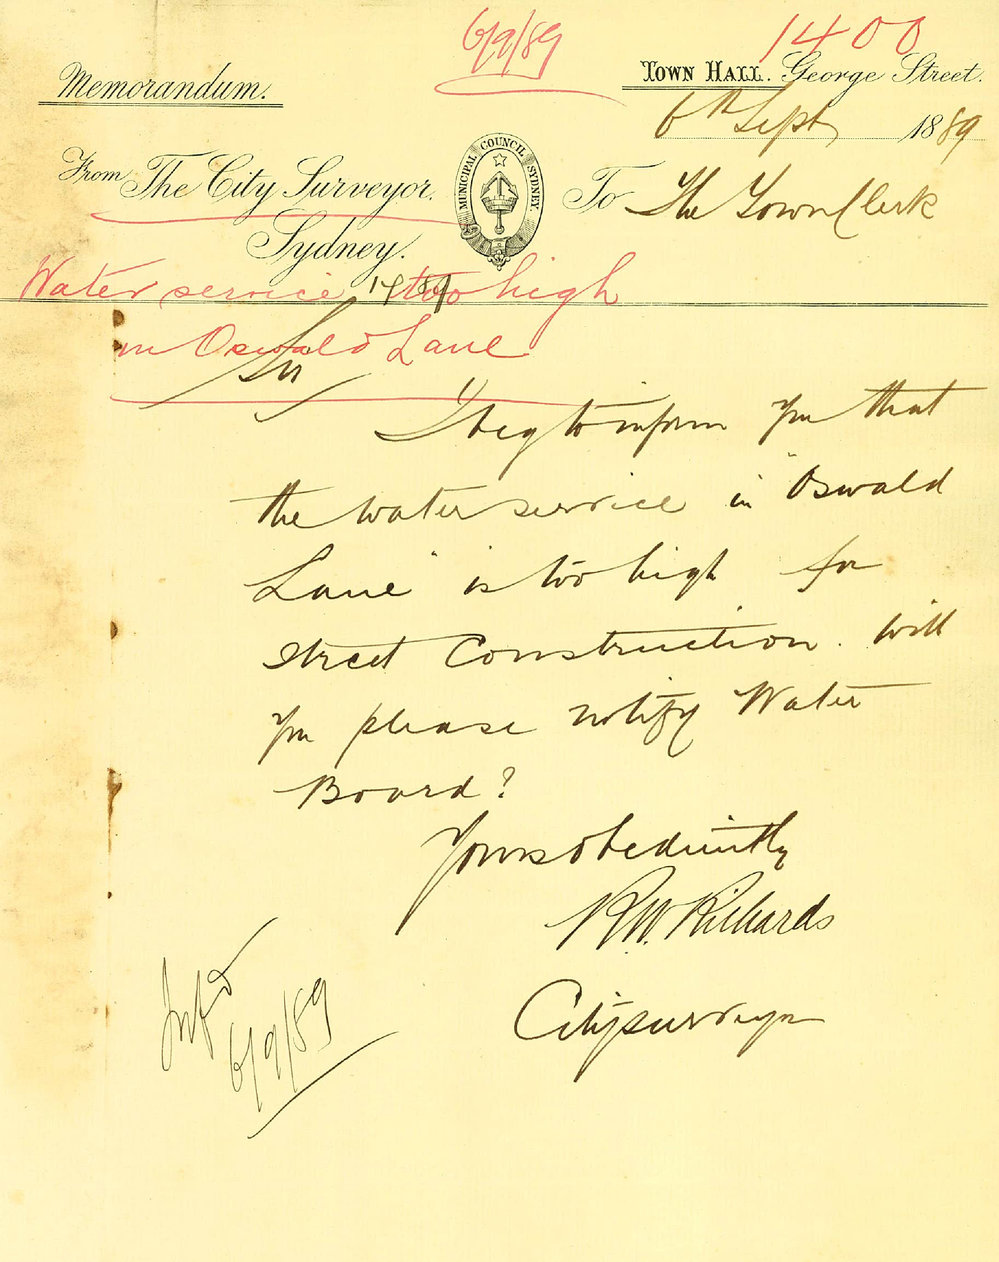 6/9/89
1400
Memorandum.
TOWN HALL. George Street.
6th Sept 1889
From The City Surveyor. Sydney.
MUNICIPAL COUNCIL SYDNEY.
To The Town Clerk
Water service too high
in Oswald Lane
Sir
I beg to inform you that
the water service in "Oswald
Lane" is too high for
street Construction. Will
you please notify Water
Board?
Yours obediently
R.W. Richards
City surveyor
Infd
6/9/89